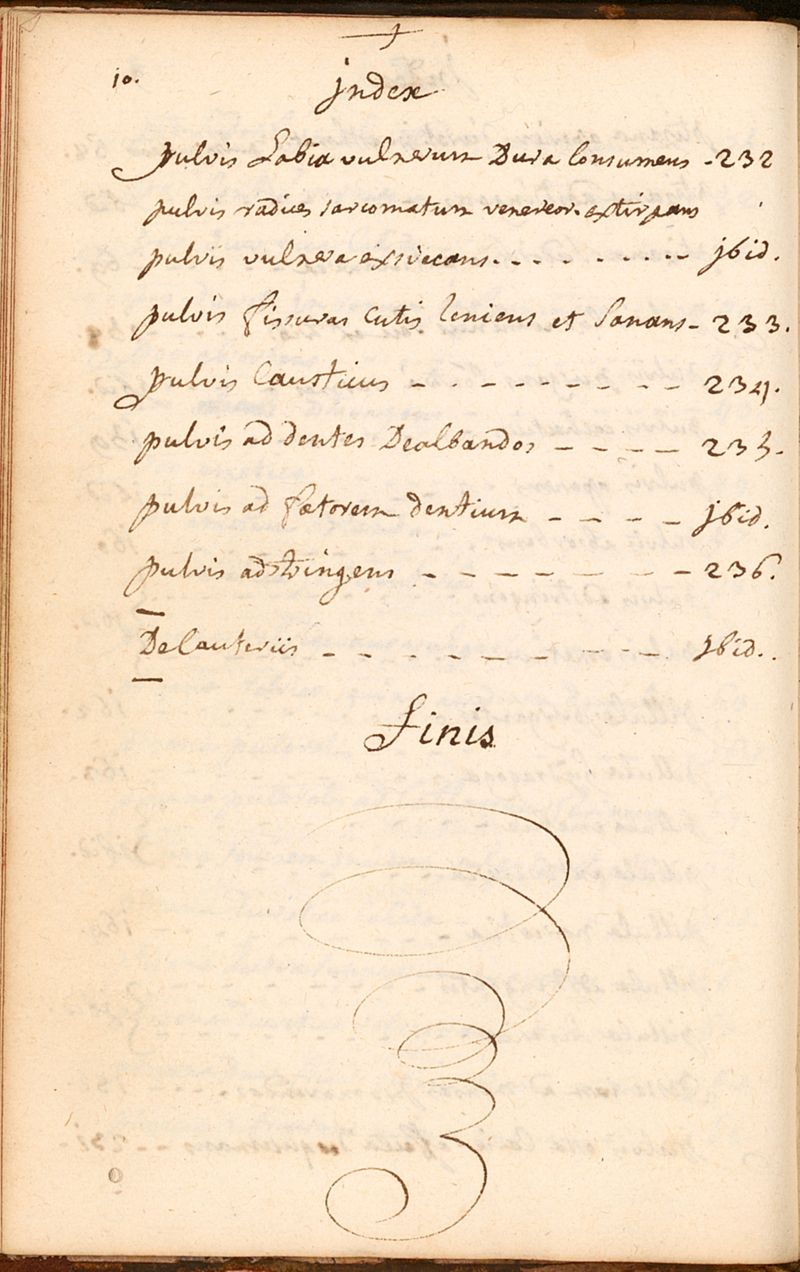 10.
jndex
pulvis Labia vulnerum Dura Consumens - 232
pulvis radices sarcomatum venereor. extirpans
pulvis vulnera exsiccans. - - - - - - - - jbid.
pulvis fissuras Cutis leniens et Sanans - 233.
pulvis Causticus - - - - - - - - - 234.
pulvis ad dentes Dealbandos - - - - 235.
pulvis ad fœtorem dentium - - - - jbid.
pulvis adstringens - - - - - - - 236.
De Cauteriis - - - - - - - - - jbid.
Finis